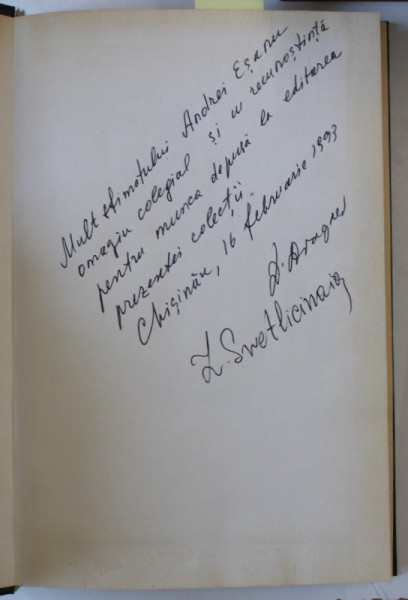 Mult stimatului Andrei Eșanu
omagiu colegial și cu recunoștință
pentru munca depusă la editarea
prezentei colecții.
Chișinău, 16 februarie 1993
D. Dragnev
L. Svetlicinaia